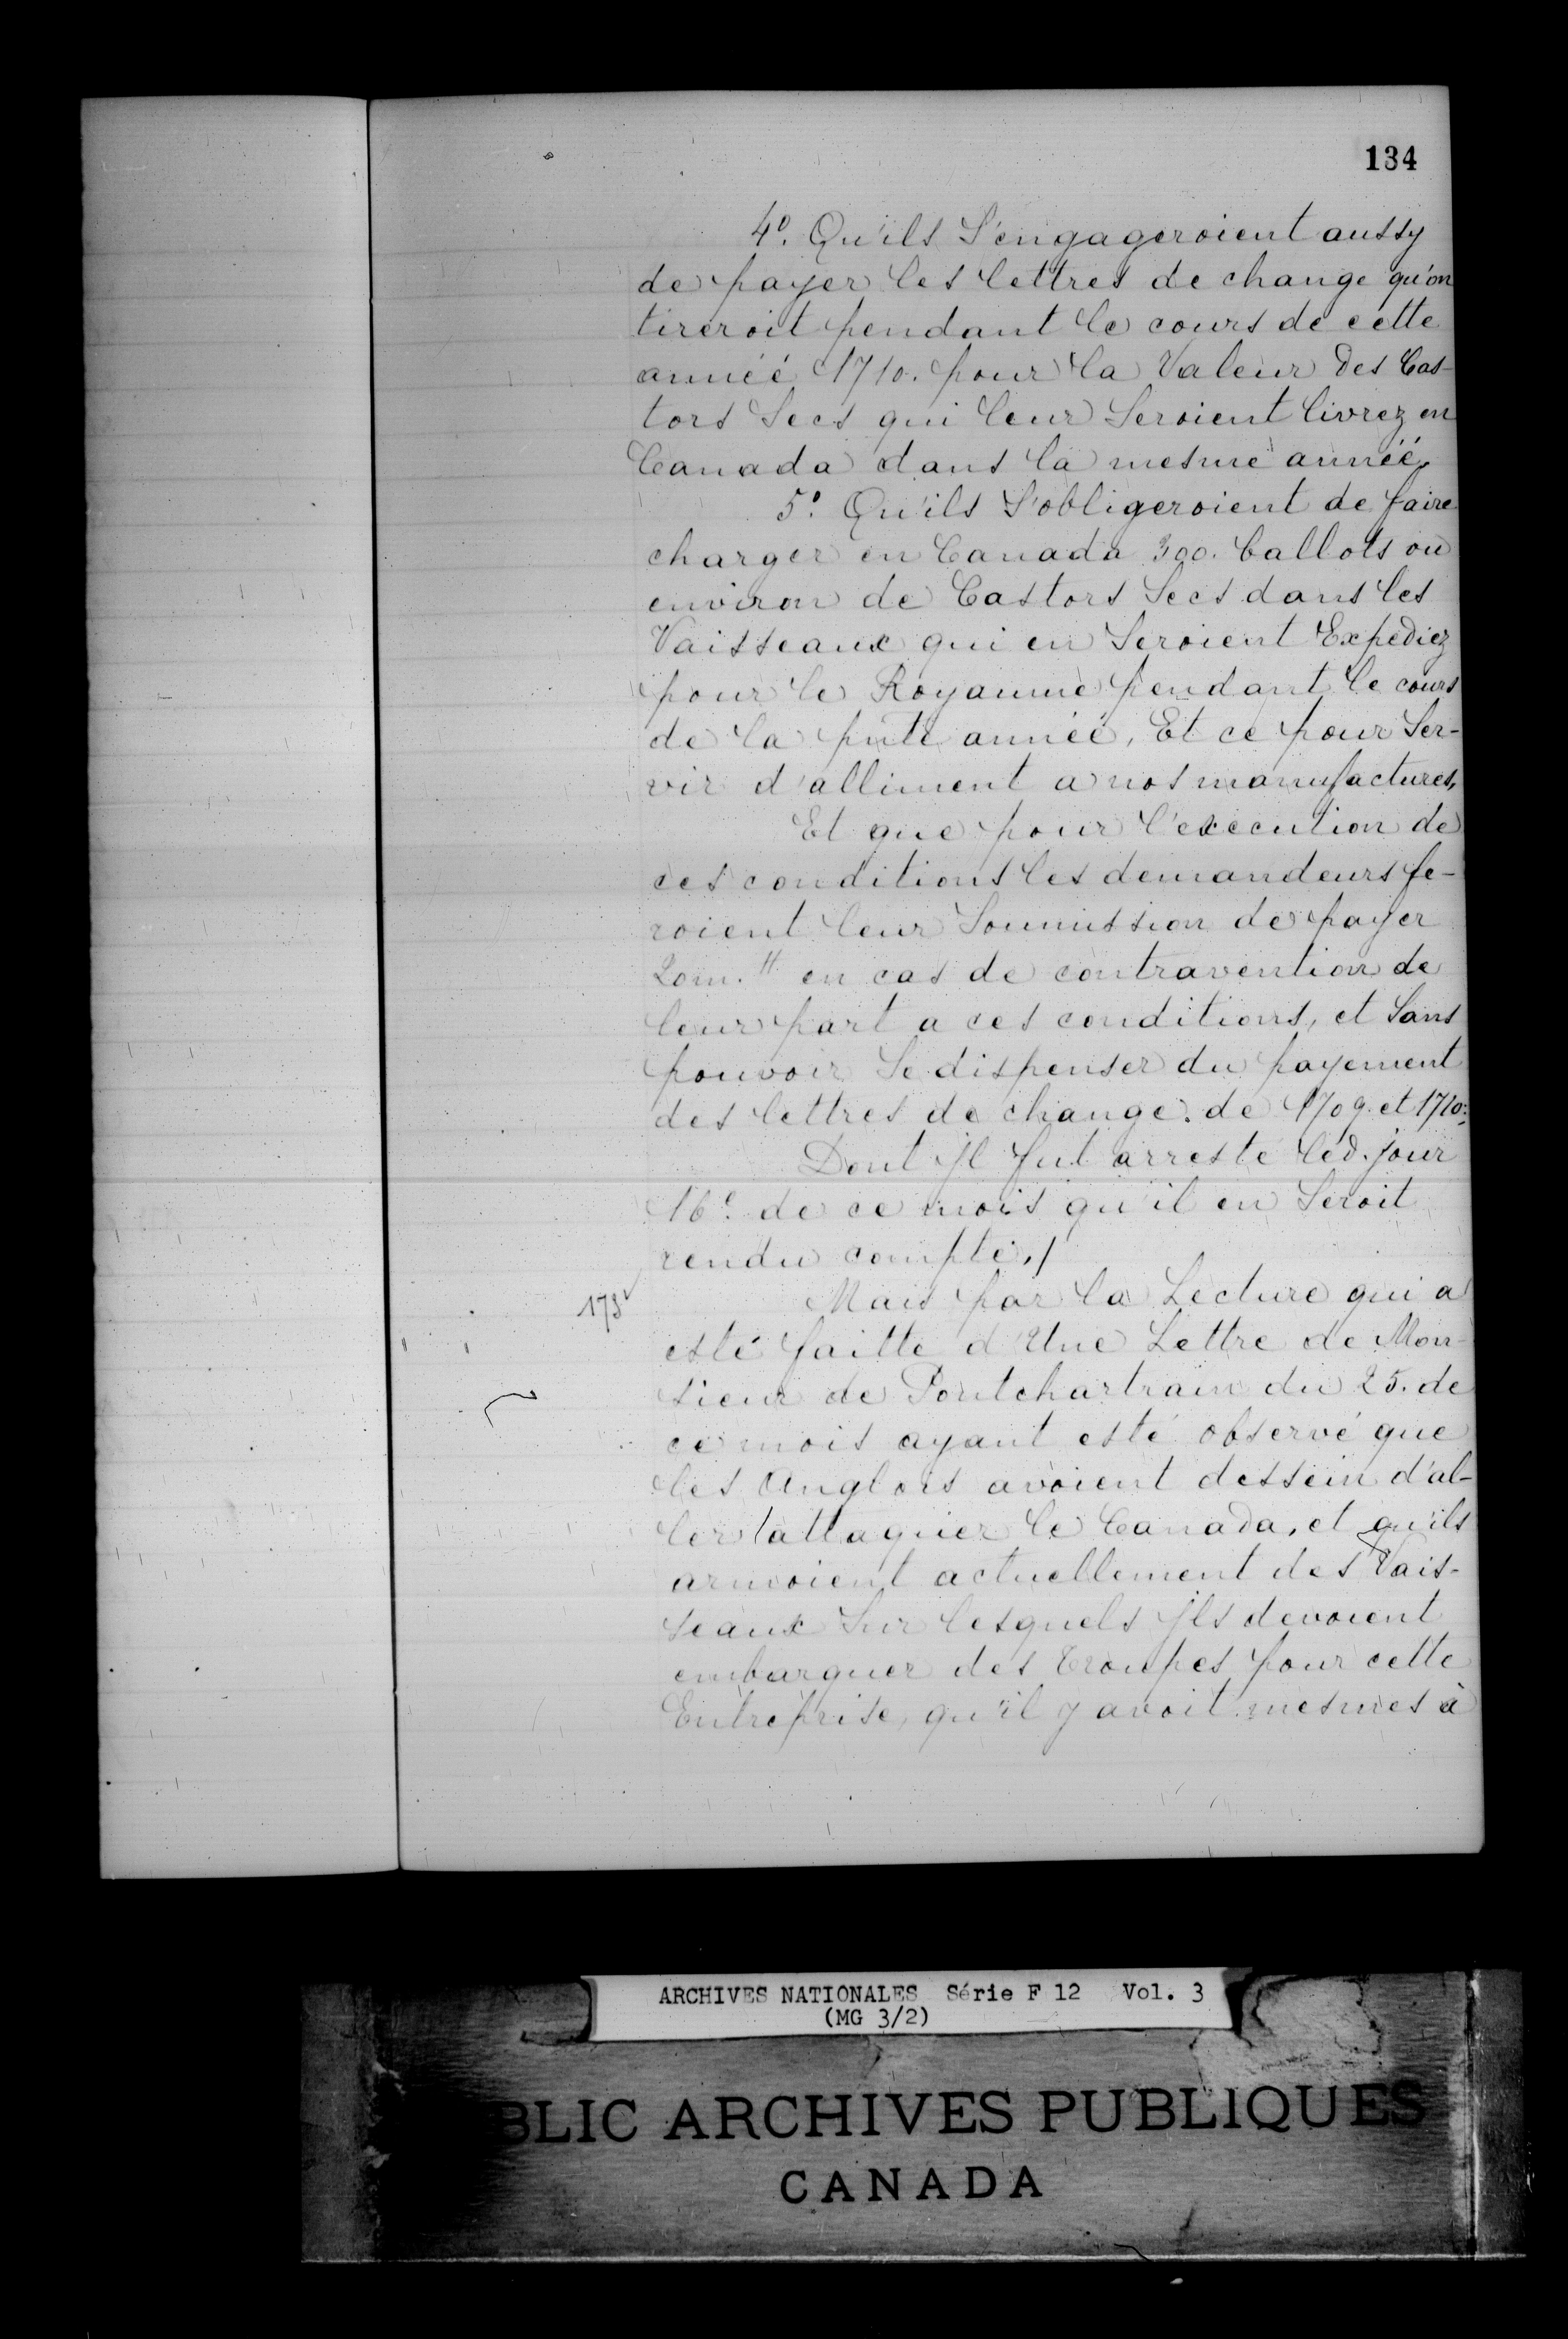 134
4º. Qu'ils S'engageroient aussy
de payer les lettres de change qu'on
tireroit pendant le cours de cette
année 1710. pour la Valeur des Cas-
tors Secs qui leur Seroient livrez en
Canada dans la mesme année.
5º. Qu'ils S'obligeroient de faire
charger en Canada 300. ballots ou
environ de Castors Secs dans les
Vaisseaux qui en Seroient Expediez
pour le Royaume pendant le cours
de la pnte année, Et ce pour Ser-
vir d'alliment a nos manufactures,
Et que pour l'execution de
ces conditions les demandeurs fe-
roient leur Soumission de payer
20m. ₶ en cas de contravention de
leur part a ces conditions, et Sans
pouvoir Se dispenser du payement
des lettres de change. de 1709. et 1710.
Dont Jl fut arresté led. jour
16e. de ce mois qu'il en Seroit
rendu compte./
173v Mais par la Lecture qui a
esté faitte d'Une Lettre de Mon-
sieur de Pontchartrain du 25. de
ce mois ayant esté observé que
les Anglois avoient dessein d'al-
ler attaquer le Canada, et qu'ils
armoient actuellement des Vais-
seaux Sur lesquels Jls devoient
embarquer des troupes pour cette
Entreprise, qu'il y avoit mesmes à
ARCHIVES NATIONALES Série F 12 Vol. 3
(MG 3/2)
BLIC ARCHIVES PUBLIQUES
CANADA